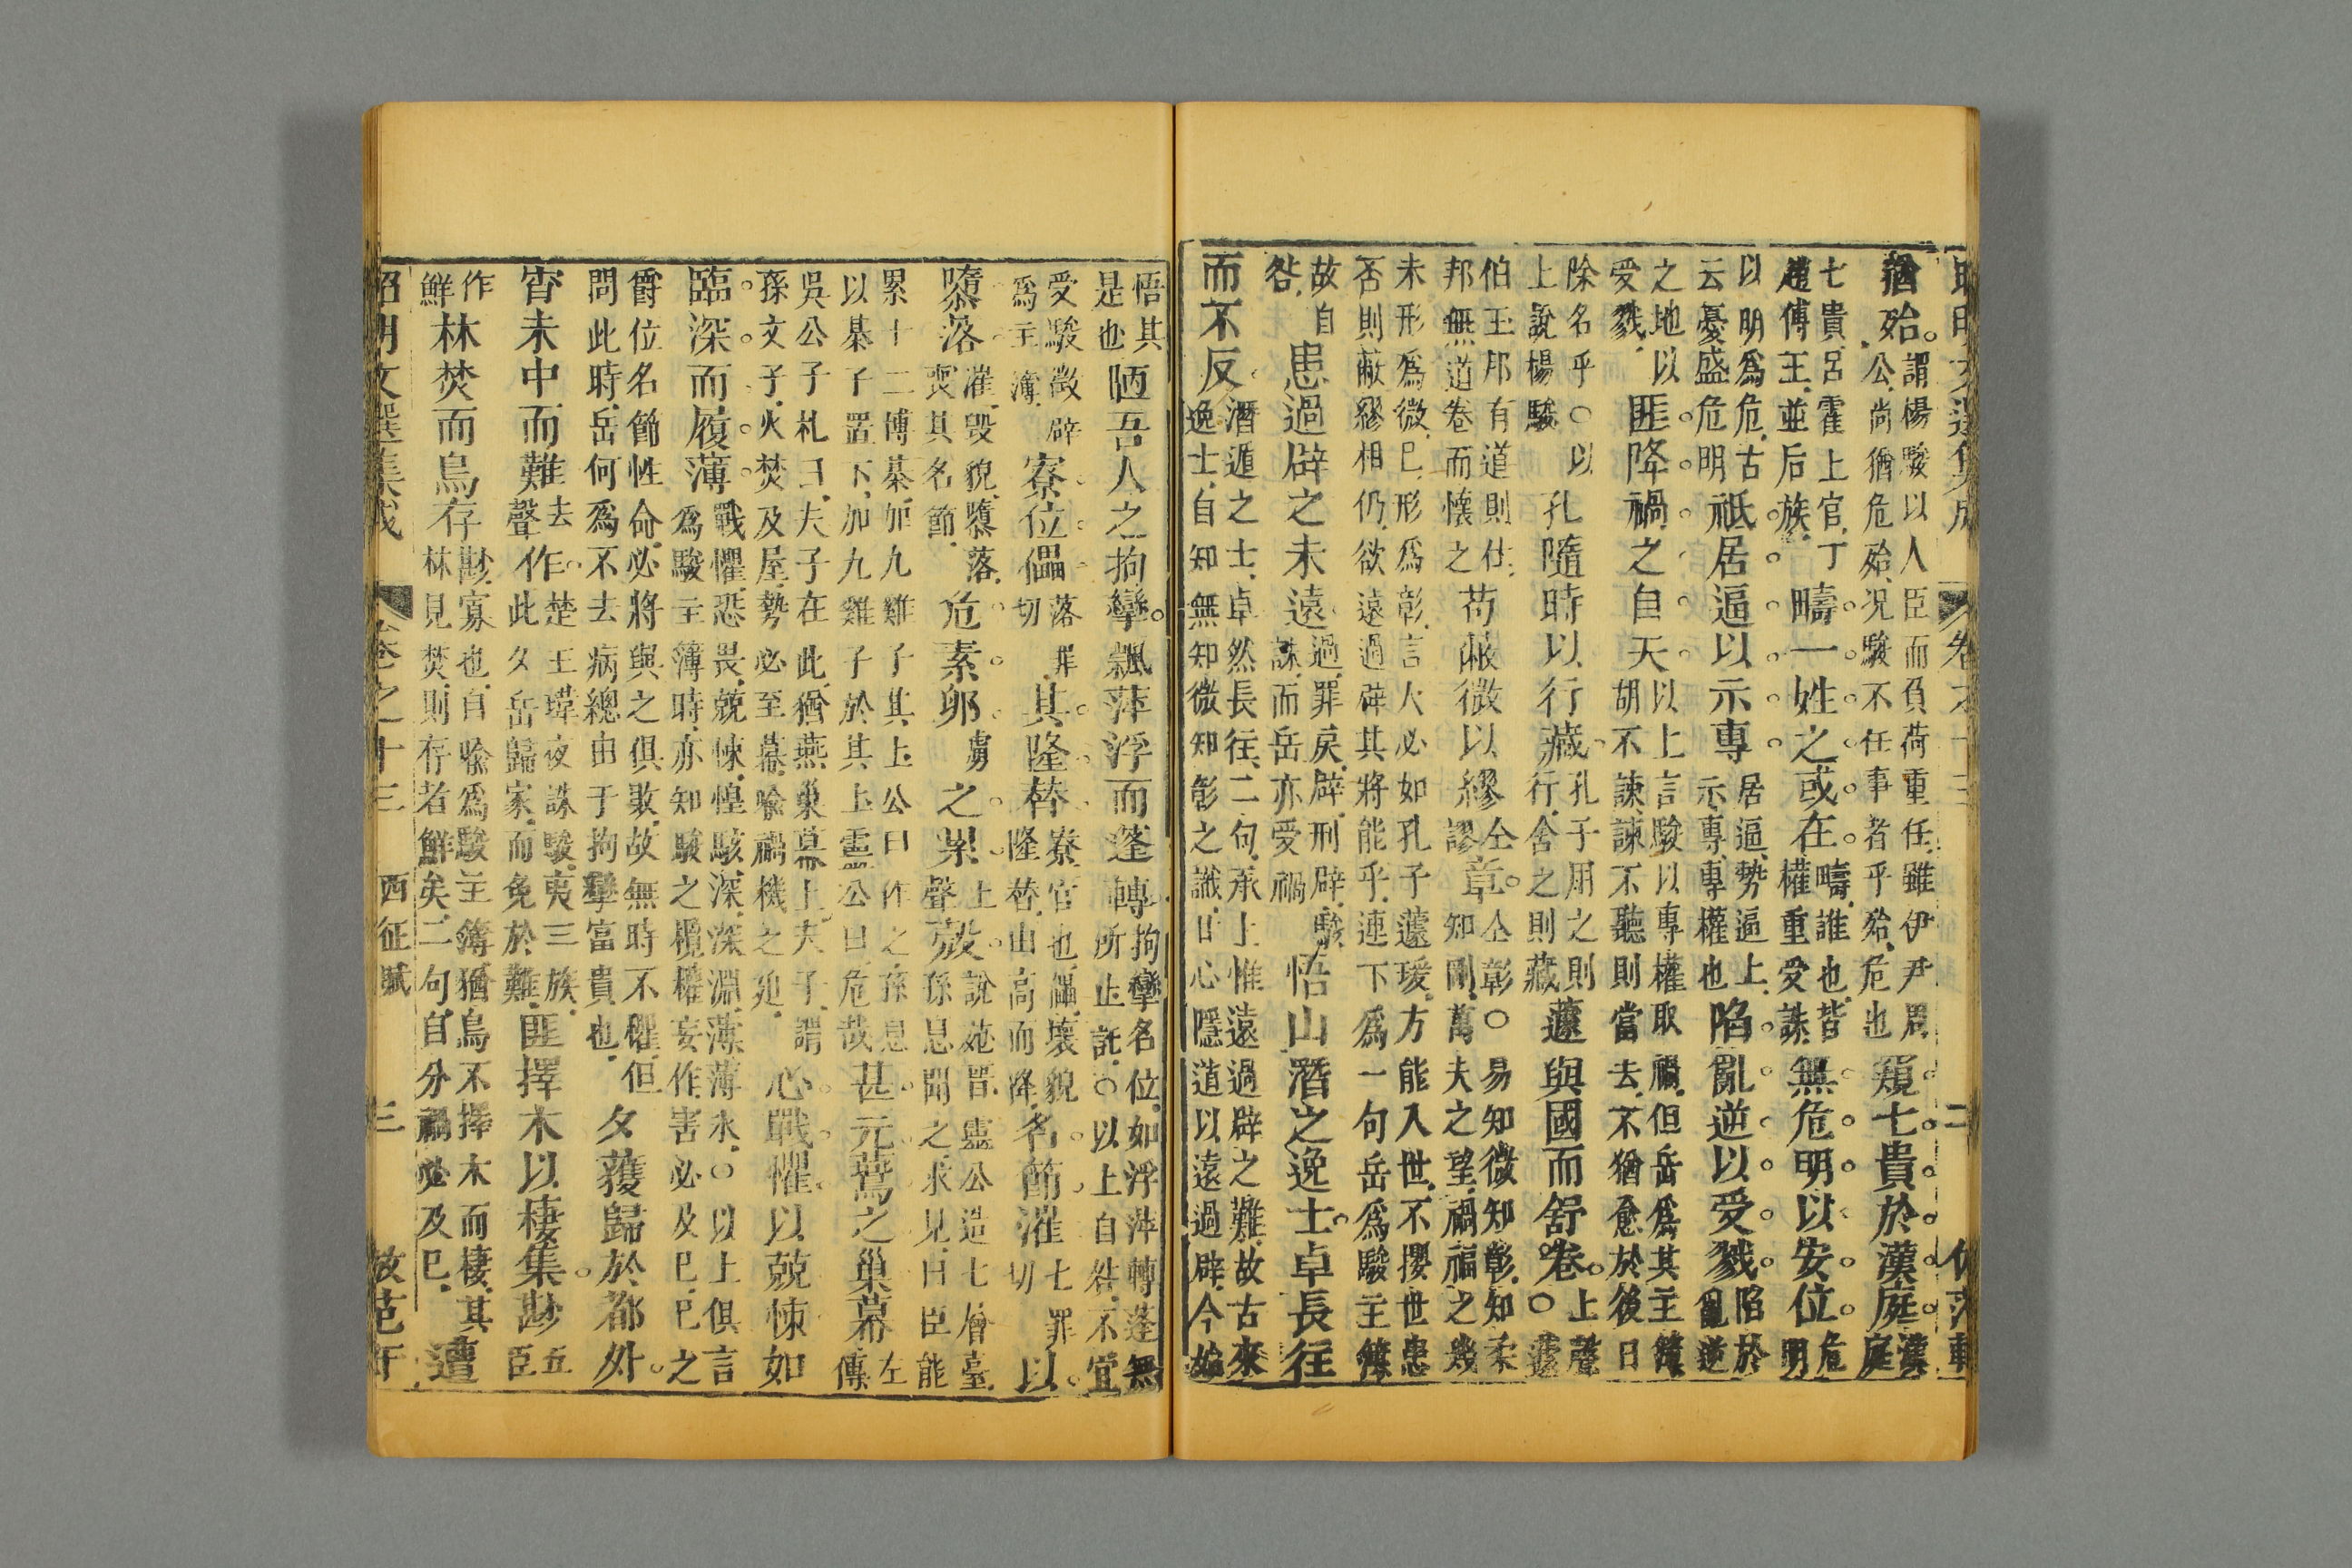 昭明文選集成　卷之十三　二
猶殆。謂楊駿以人臣而負荷重任雖伊尹周公尚猶危殆况駿不任事者乎殆危也窺七貴於漢庭。漢庭
七貴呂霍上官丁趙傅王並后族疇一姓之或在。疇誰也皆權重受誅無危明以安位。危明
以明爲危古云憂盛危明祇居逼以示專。居逼勢逼上示專專權也陷亂逆以受戮。陷於亂逆
之地以受戮匪降禍之自天。以上言駿以專權取禍但岳爲其主簿胡不諫諫不聽則當去不猶愈於後日
除名乎○以上說楊駿孔隨時以行藏孔子用之則行舍之則藏蘧與國而舒卷。○上聲蘧
伯玉邦有道則仕邦無道卷而懷之苟蔽微以繆仝謬章。仝彰○易知微知彰知柔知剛萬夫之望禍福之幾
未形爲微巳形爲彰言人必如孔子蘧瑗方能入世不攖世患否則蔽繆相仍欲遠過辟其將能乎連下爲一句岳爲駿主簿
故自咎患過辟之未遠。過罪戾辟刑辟駿誅而岳亦受禍悟山潛之逸士。卓長往
而不反。潛遁之士卓然長往二句承上惟遠過辟之難故古來逸士自知無知微知彰之識甘心隱遁以遠過辟今始
悟其是也陋吾人之拘攣。飄萍浮而蓬轉拘攣名位如浮萍轉蓬無所止託○以上自咎不宜
受駿徵辟爲主簿寮位儡落罪切其隆替寮官也儡壞貌隆替山高而降名節漼七罪切以
隳落。漼毀貌隳落喪其名節危素卵虜之累上聲殼。說苑晉靈公造七層臺孫息聞之求見曰臣能
累十二博棊加九雞子其上公曰作之孫息以棊子置下加九雞子於其上靈公曰危哉甚元鷰之巢幕左傳
吳公子札曰夫子在此猶燕巢幕上夫子謂孫文子火焚及屋勢必至幕喩禍機之迎心戰懼以兢悚如
臨深而履薄。戰懼恐畏兢悚惶駭深深淵薄薄氷○以上俱言爲駿主簿時亦知駿之攬權妄作害必及巳巳之
爵位名節性命必將與之俱敗故無時不懼但問此時岳何爲不去病總由于拘攣富貴也夕獲歸於都外。
宵未中而難去聲作。楚王瑋夜誅駿夷三族此夕岳歸家而免於難匪擇木以棲集。尠五臣
作鮮林焚而鳥存尠寡也自喩爲駿主簿猶鳥不擇木而棲其林見焚則存者鮮矣二句自分禍必及巳遭
昭明文選集成　卷之十三　西征賦　三